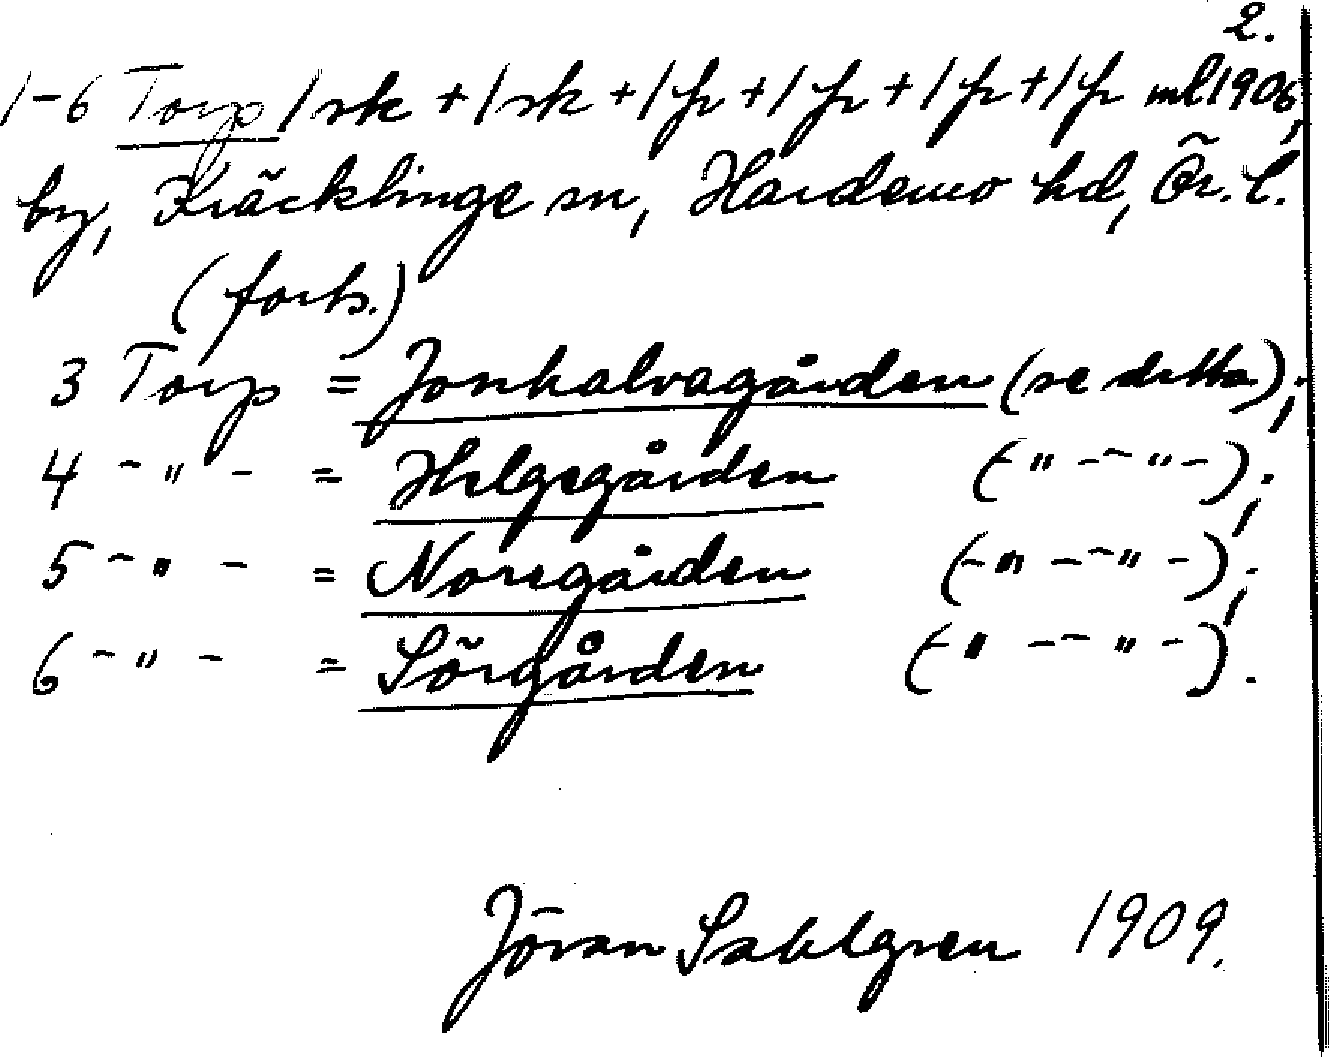 2.
1-6 Torp 1 sk + 1 sk + 1 fr + 1 fr + 1 fr + 1 fr ml 1906,
by, Kräcklinge sn, Hardemo hd, Ör. l.
(forts.)
3 Torp = Jonhalvagården (se ditto);
4 - " - = Helgegården (- " - - " -);
5 - " - = Noregården (- " - - " -);
6 - " - = Sörgården (- " - - " -).
Jöran Sahlgren 1909.